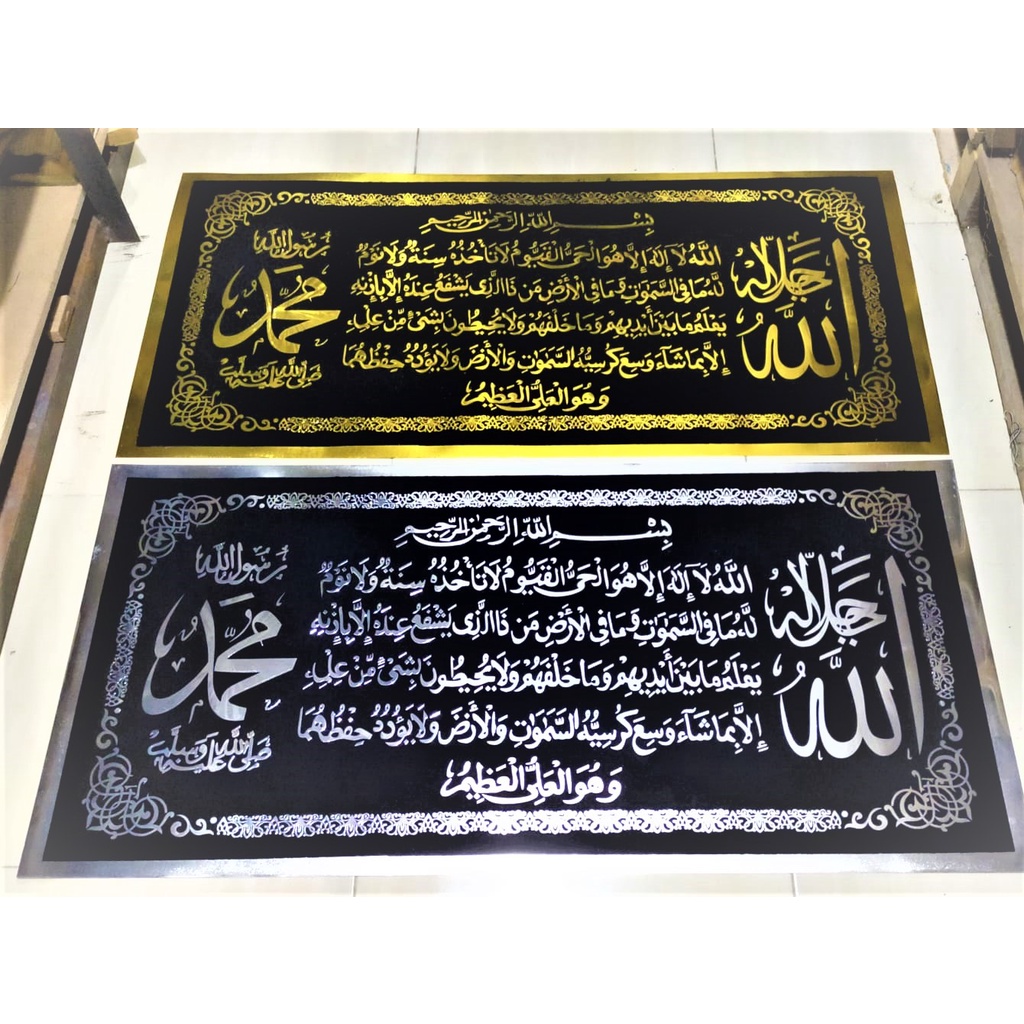 بِسْمِ اللّٰهِ الرَّحْمٰنِ الرَّحِيْمِ
اَللّٰهُ لَآ اِلٰهَ اِلَّا هُوَ الْحَيُّ الْقَيُّوْمُ لَا تَأْخُذُهٗ سِنَةٌ وَّلَا نَوْمٌ
لَهٗ مَا فِى السَّمٰوٰتِ وَمَا فِى الْاَرْضِ مَنْ ذَا الَّذِىْ يَشْفَعُ عِنْدَهٗٓ اِلَّا بِاِذْنِهٖ
يَعْلَمُ مَا بَيْنَ اَيْدِيْهِمْ وَمَا خَلْفَهُمْ وَلَا يُحِيْطُوْنَ بِشَىْءٍ مِّنْ عِلْمِهٖٓ
اِلَّا بِمَا شَآءَ وَسِعَ كُرْسِيُّهُ السَّمٰوٰتِ وَالْاَرْضَ وَلَا يَؤُدُهٗ حِفْظُهُمَا
وَهُوَ الْعَلِىُّ الْعَظِيْمُ
اللّٰه
جل جلاله
رسول اللّٰه
محمد
صلى اللّٰه عليه وسلم
بِسْمِ اللّٰهِ الرَّحْمٰنِ الرَّحِيْمِ
اَللّٰهُ لَآ اِلٰهَ اِلَّا هُوَ الْحَيُّ الْقَيُّوْمُ لَا تَأْخُذُهٗ سِنَةٌ وَّلَا نَوْمٌ
لَهٗ مَا فِى السَّمٰوٰتِ وَمَا فِى الْاَرْضِ مَنْ ذَا الَّذِىْ يَشْفَعُ عِنْدَهٗٓ اِلَّا بِاِذْنِهٖ
يَعْلَمُ مَا بَيْنَ اَيْدِيْهِمْ وَمَا خَلْفَهُمْ وَلَا يُحِيْطُوْنَ بِشَىْءٍ مِّنْ عِلْمِهٖٓ
اِلَّا بِمَا شَآءَ وَسِعَ كُرْسِيُّهُ السَّمٰوٰتِ وَالْاَرْضَ وَلَا يَؤُدُهٗ حِفْظُهُمَا
وَهُوَ الْعَلِىُّ الْعَظِيْمُ
اللّٰه
جل جلاله
رسول اللّٰه
محمد
صلى اللّٰه عليه وسلم